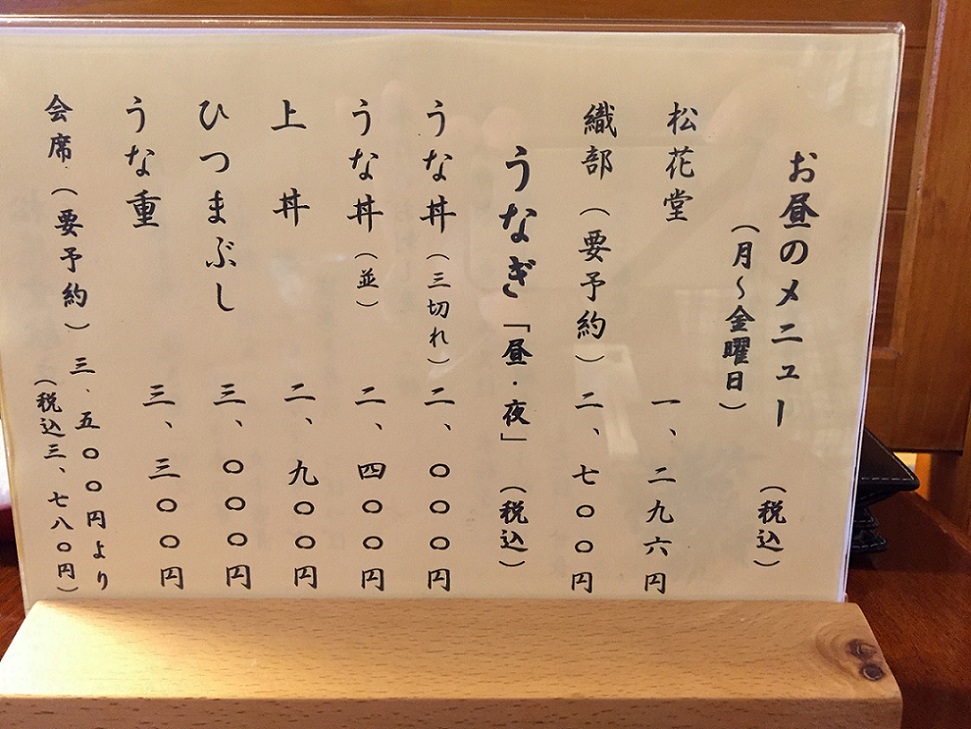 お昼のメニュー（税込）
（月～金曜日）
松花堂 一、二九六円
織部（要予約）二、七〇〇円
うなぎ「昼・夜」（税込）
うな丼（三切れ）二、〇〇〇円
うな丼（並）二、四〇〇円
上丼 二、九〇〇円
ひつまぶし 三、〇〇〇円
うな重 三、三〇〇円
会席（要予約）三、五〇〇円より
（税込三、七八〇円）